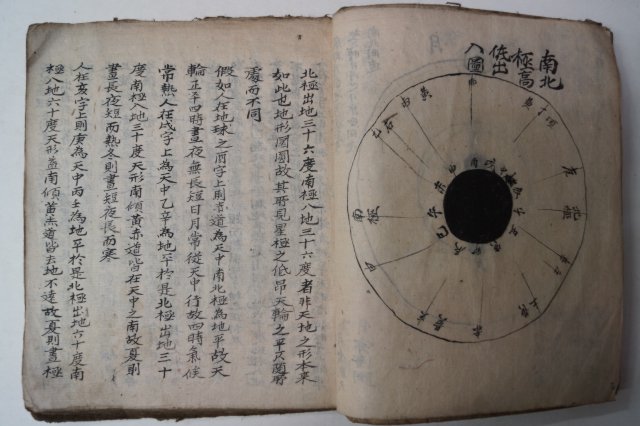 南北
極高
低出
入圖
北極
南極
北極出地三十六度南極入地三十六度者非天地之形本来
如此也地形圓圖故其所見星極之低昂天輪之平仄隨所
處而不同
假如人在地球之酉字上則赤道為天中南北極為地平故天
輪正平四時晝夜無長短日月常從天中行故四時氣候
常熱人在戌字上為天中乙辛為地平於是北極出地三十
度南極入地三十度天形南傾黃赤道皆在天中之南故夏則
晝長夜短而熱冬則晝短夜長而寒
人在亥字上則庚為天中丙壬為地平於是北極出地六十度南
極入地六十度天形益南傾黃赤道皆去地不遠故夏則晝極